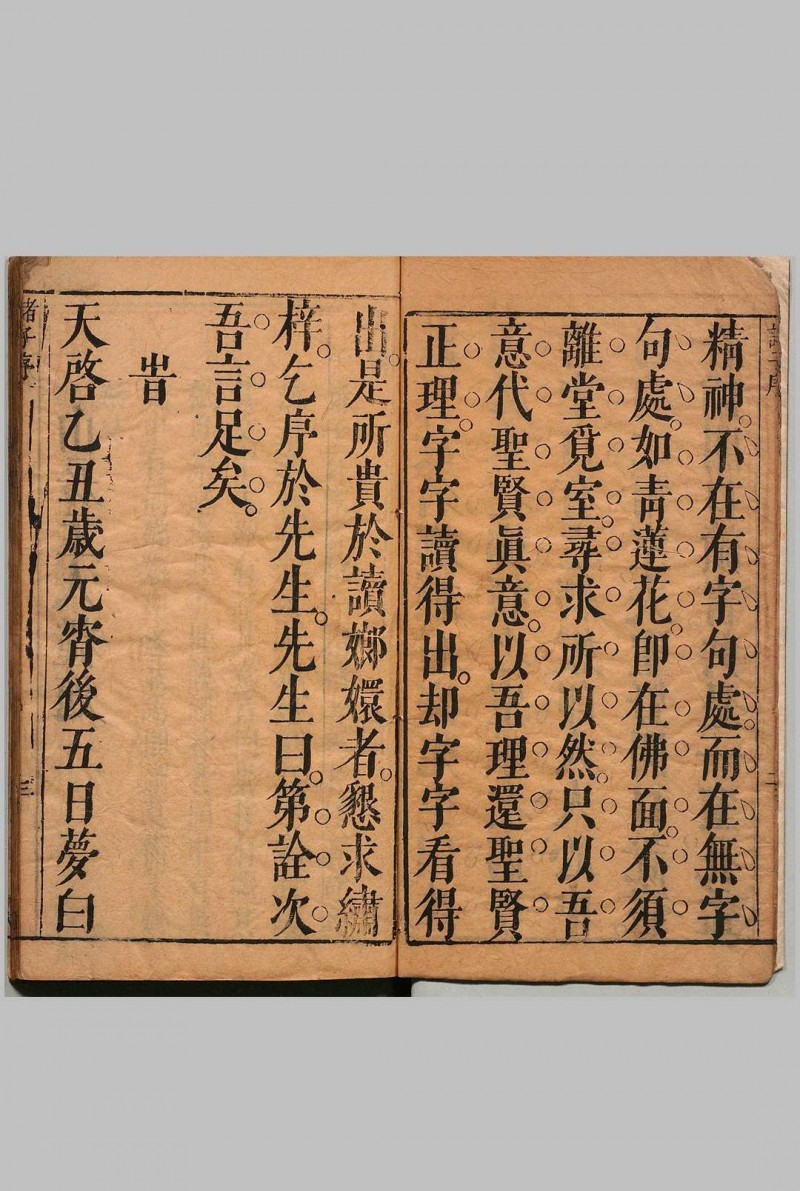 精神。不在有字句處。而在無字
句處。如青蓮花。卽在佛面。不須
離堂覓室。尋求所以然。只以吾
意代聖賢眞意。以吾理還聖賢
正理。字字讀得出。却字字看得
出。是所貴於讀嫏嬛者。懇求繡
梓。乞序於先生。先生曰。第詮次
吾言足矣。
旹
天啓乙丑歲元宵後五日夢白
諸子序
三